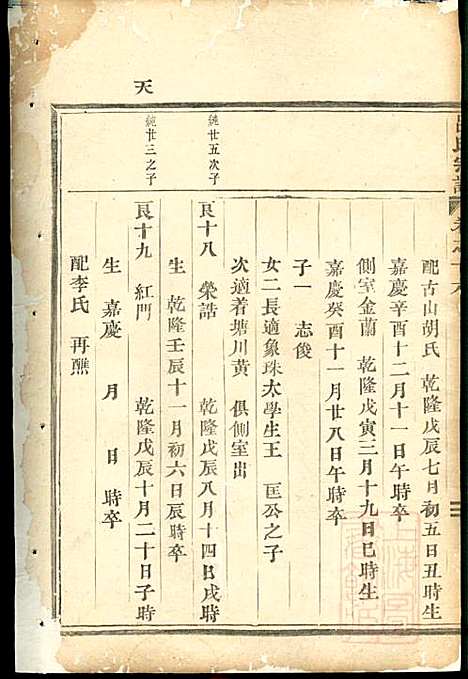 呂氏宗譜
配古山胡氏 乾隆戊辰七月初五日丑時生
嘉慶辛酉十二月十一日午時卒
側室金蘭 乾隆戊寅三月十九日巳時生
嘉慶癸酉十一月廿八日午時卒
子一 志俊
女二長適象珠太學生王 匡公之子
次適着塘川黃 俱側室出
純廿五次子
良十八 榮誥 乾隆戊辰八月十四日戌時
生 乾隆壬辰十一月初六日辰時卒
純廿三之子
良十九 紅門 乾隆戊辰十月二十日子時
生 嘉慶 月 日 時卒
配李氏 再醮
天